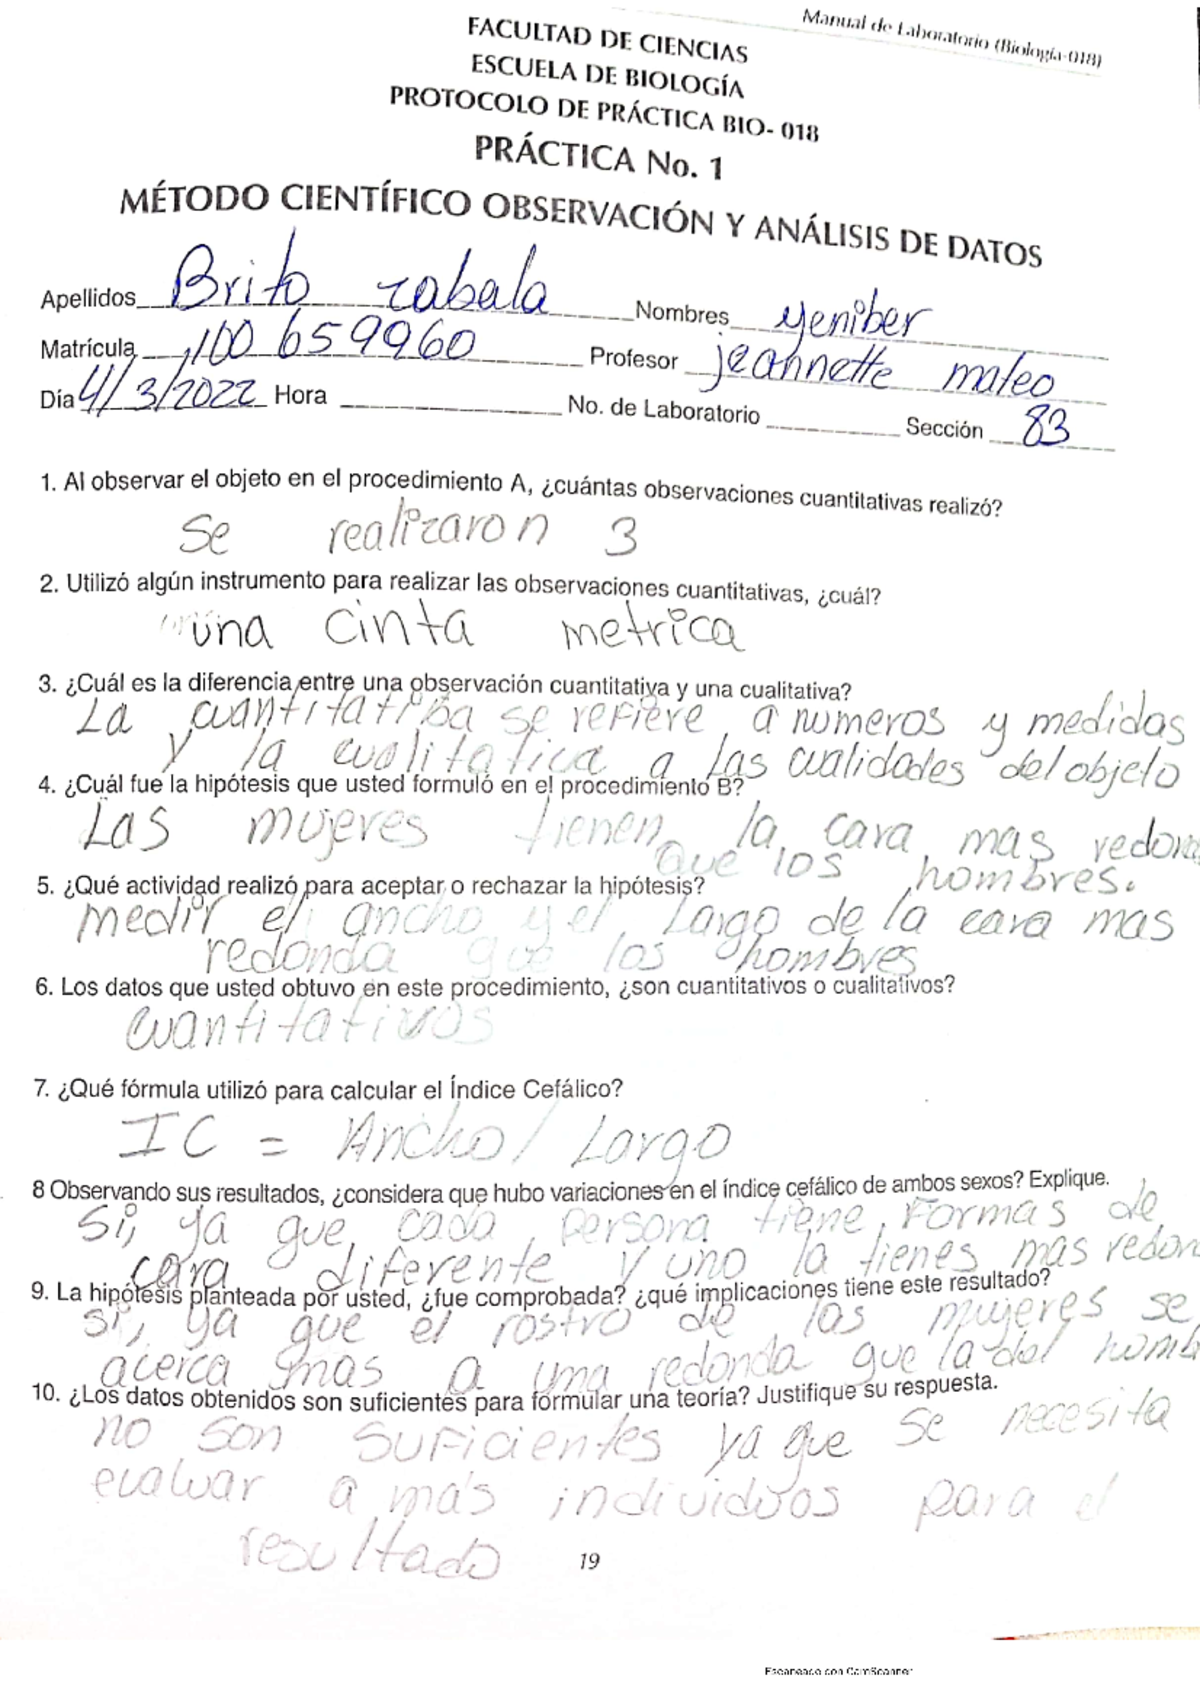 Manual de Laboratorio (Biología-018)
FACULTAD DE CIENCIAS
ESCUELA DE BIOLOGÍA
PROTOCOLO DE PRÁCTICA BIO- 018
PRÁCTICA No. 1
MÉTODO CIENTÍFICO OBSERVACIÓN Y ANÁLISIS DE DATOS
Apellidos Brito zabala Nombres yeniber
Matrícula 100 659960 Profesor jeannette mateo
Día 4/3/2022 Hora No. de Laboratorio Sección 83
1. Al observar el objeto en el procedimiento A, ¿cuántas observaciones cuantitativas realizó?
se realizaron 3
2. Utilizó algún instrumento para realizar las observaciones cuantitativas, ¿cuál?
una cinta metrica
3. ¿Cuál es la diferencia entre una observación cuantitativa y una cualitativa?
La cuantitatiba se refiere a numeros y medidas
y la cualitatica a las cualidades del objeto
4. ¿Cuál fue la hipótesis que usted formuló en el procedimiento B?
Las mujeres tienen la cara mas redona
que los hombres.
5. ¿Qué actividad realizó para aceptar o rechazar la hipótesis?
medir el ancho y el Largo de la cara mas
redonda que los hombres
6. Los datos que usted obtuvo en este procedimiento, ¿son cuantitativos o cualitativos?
cuantitativos
7. ¿Qué fórmula utilizó para calcular el Índice Cefálico?
IC = Ancho / Largo
8 Observando sus resultados, ¿considera que hubo variaciones en el índice cefálico de ambos sexos? Explique.
Si, ya que cada persona tiene formas de
cara diferente y uno la tienes mas redon
9. La hipótesis planteada por usted, ¿fue comprobada? ¿qué implicaciones tiene este resultado?
si, ya que el rostro de las mujeres se
acerca mas a una redonda que la del homb
10. ¿Los datos obtenidos son suficientes para formular una teoría? Justifique su respuesta.
no son suficientes ya que se necesita
evaluar a más individuos para el
resultado
19
Escaneado con CamScanner